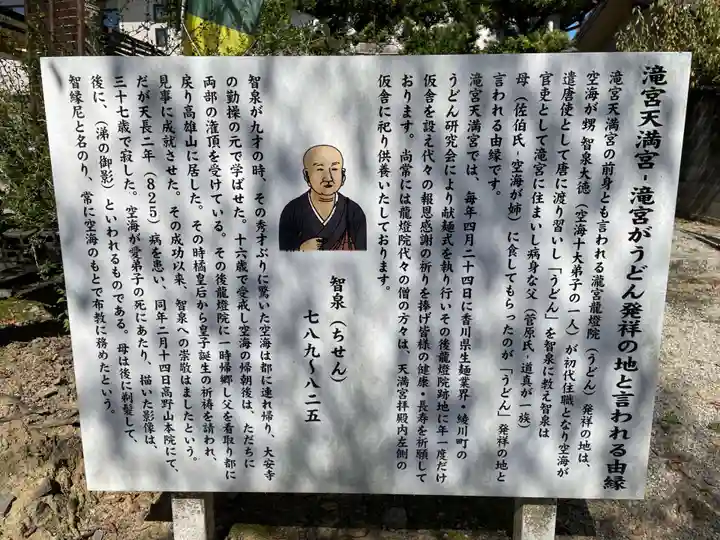 滝宮天満宮-滝宮がうどん発祥の地と言われる由縁
滝宮天満宮の前身とも言われる瀧宮龍燈院(うどん)発祥の地は、
空海が甥 智泉大徳(空海十大弟子の一人)が初代住職となり空海が
遣唐使として唐に渡り習いし「うどん」を智泉に教え智泉は
官吏として滝宮に住まいし病身な父(菅原氏-道真が一族)
母(佐伯氏、空海が姉)に食してもらったのが「うどん」発祥の地と
言われる由縁です。
滝宮天満宮では、毎年四月二十四日に香川県生麺業界・綾川町の
うどん研究会により献麺式を執り行いその後龍燈院跡地に年一度だけ
仮舎を設え代々の報恩感謝の祈りを捧げ皆様の健康・長寿を祈願して
おります。尚常には龍燈院代々の僧の方々は、天満宮拝殿内左側の
仮舎に祀り供養いたしております。
智泉(ちせん)
七八九～八二五
智泉が九才の時、その秀才ぶりに驚いた空海は都に連れ帰り、大安寺
の勤操の元で学ばせた。十六歳で受戒し空海の帰朝後は、ただちに
両部の潅頂を受けている。その後龍燈院に一時帰郷し父を看取り都に
戻り高雄山に居した。その時橘皇后から皇子誕生の祈祷を請われ、
見事に成就させた。その成功以来、智泉への崇敬はましたという。
だが天長二年(825)病を患い、同年二月十四日高野山本院にて、
三十七歳で寂した。空海が愛弟子の死にあたり、描いた影像は、
後に、(涕の御影)といわれるものである。母は後に剃髪して、
智縁尼と名のり、常に空海のもとで布教に務めたという。